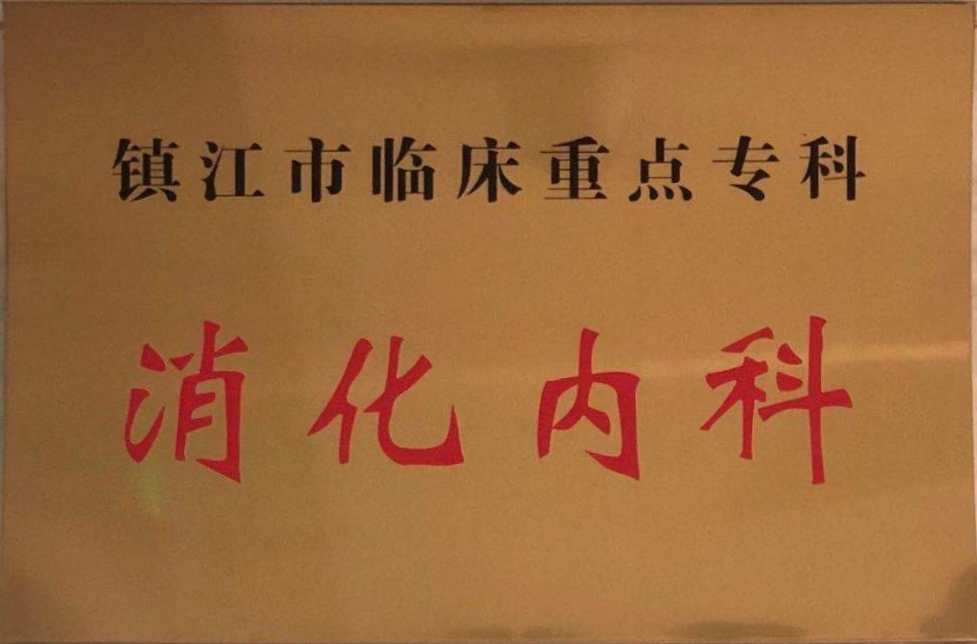 镇江市临床重点专科
消化内科